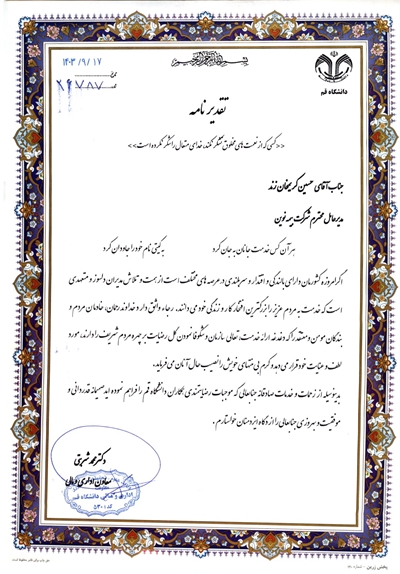 بسم الله الرحمن الرحیم
۱۴۰۳/۹/۱۷
دانشگاه قم
تقدیرنامه
<<کسی که از نعمت های مخلوق تشکر نکند، خدای متعال را شکر نکرده است>>
جناب آقای حسین کریمخان زند
مدیرعامل محترم شرکت بیمه نوین
هر آن کس خدمت جانان به جان کرد به گیتی نام خود را جاودان کرد
اگر امروزه کشورمان دارای بالندگی و اقتدار و سربلندی در عرصه های مختلف است از همت و تلاش مدیران دلسوز و متعهدی
است که خدمت به مردم عزیز را بزرگترین افتخار کار و زندگی خود می دانند. رجاء واثق دارد خداوند رحمان، خادمان مردم و
بندگان مومن و معتقد را که دغدغه ارائه خدمت، تعالی سازمان و شکوفا نمودن گل رضایت بر چهره مردم شریف را دارند، مورد
لطف و عنایت خود قرار می دهد و کرم بی منتهای خویش را نصیب حال آنان می فرماید.
بدینوسیله از زحمات و خدمات صادقانه جنابعالی که موجبات رضایتمندی همکاران دانشگاه قم را فراهم نموده اید صمیمانه قدردانی و
موفقیت و بهروزی جنابعالی را از درگاه ایزدمنان خواستارم.
دکتر محمد شربتی
معاون اداری و مالی
اداری و مالی دانشگاه قم